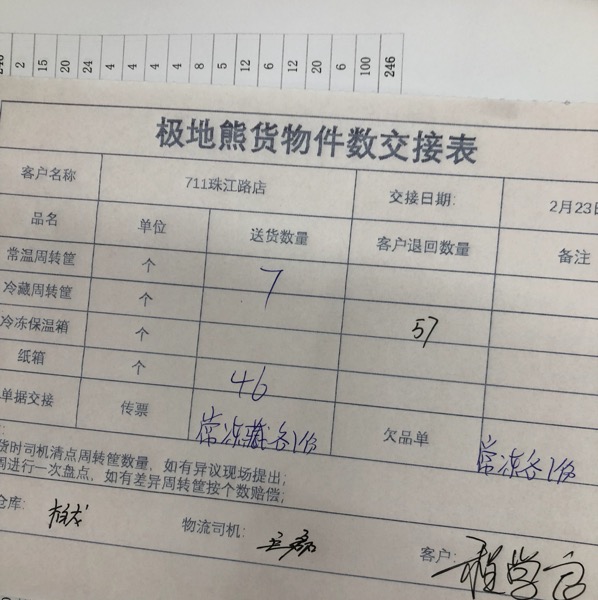 2 15 20 24 4 4 4 8 5 12 6 12 20 6 100 246
极地熊货物件数交接表
客户名称 711珠江路店 交接日期: 2月23
品名 单位 送货数量 客户退回数量 备注
常温周转筐 个 7
冷藏周转筐 个
冷冻保温箱 个 57
纸箱 个 46
单据交接 传票 常冻藏各1份 欠品单 常冻各1份
货时司机清点周转筐数量，如有异议现场提出；
周进行一次盘点，如有差异周转筐按个数赔偿；
仓库: 物流司机: 王磊 客户: